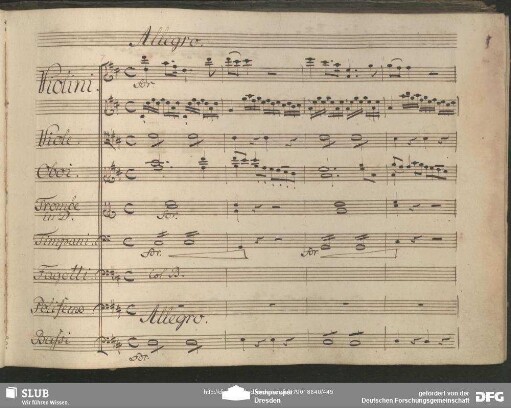 Allegro.
Violini.
for.
Viole.
Oboi.
Trombe
in D.
for.
Timpani.
for.
for
Fagotti.
Col B.
Allegro.
Bassi
for.
SLUB
Wir führen Wissen.
Dresden
gefördert von der
Deutschen Forschungsgemeinschaft
DFG